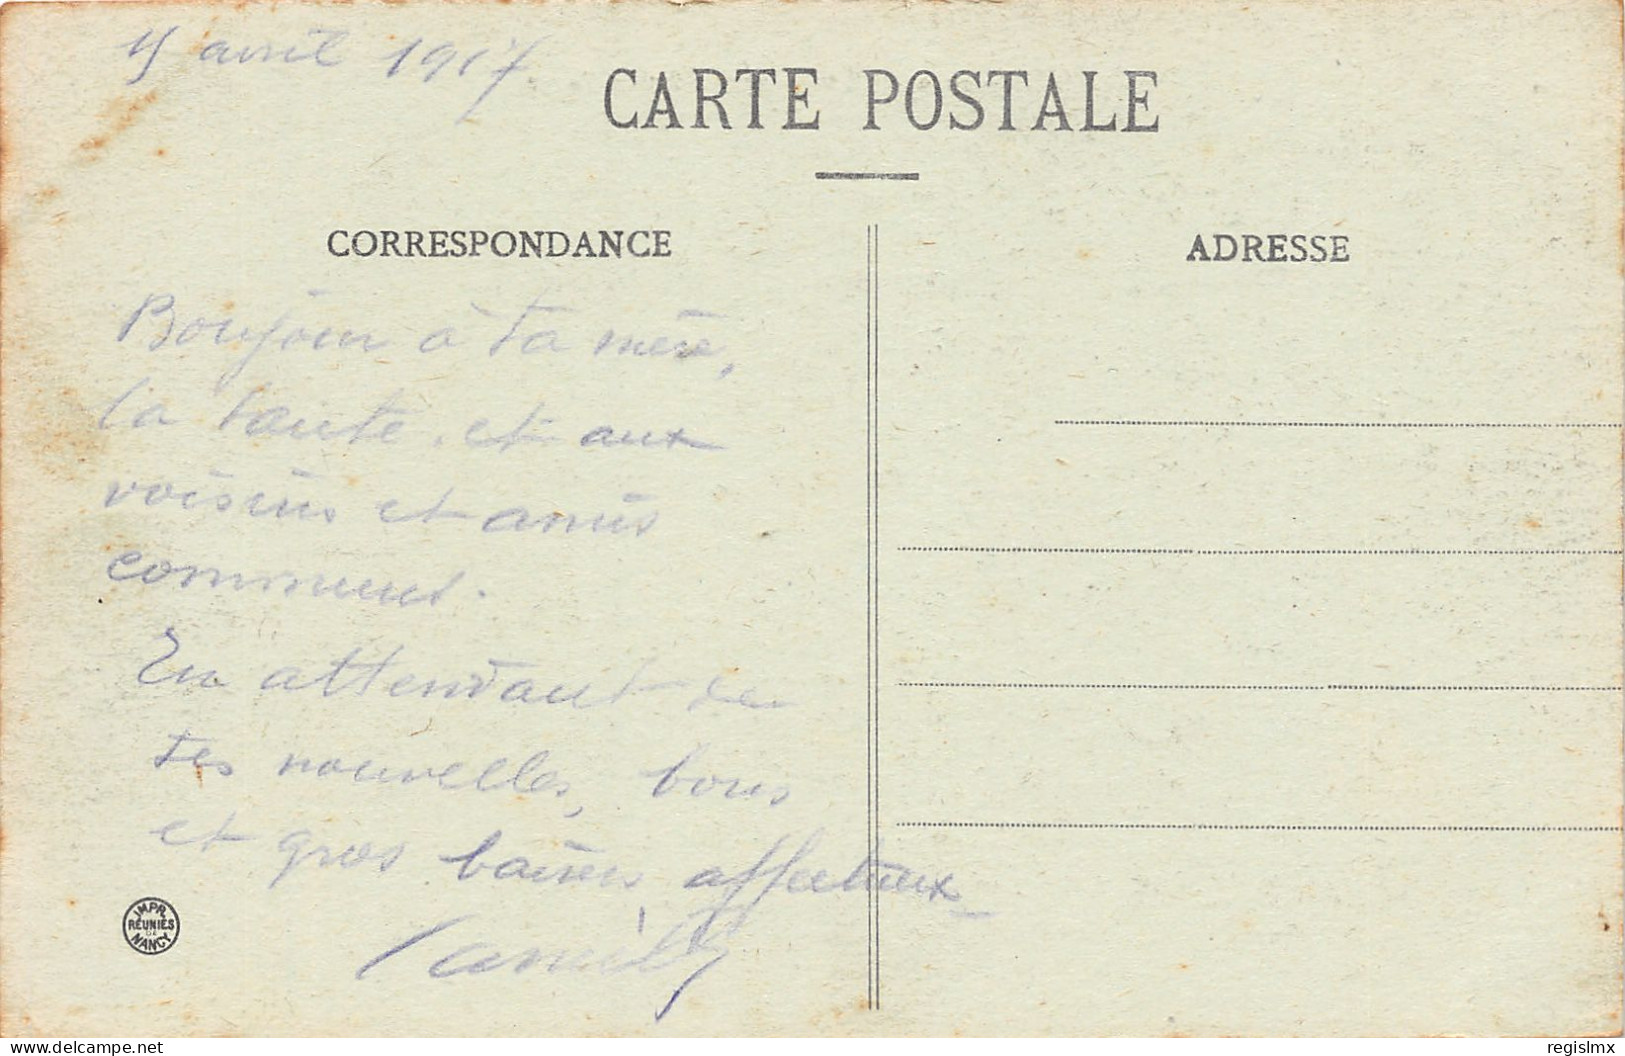 avril 1917.
CARTE POSTALE
CORRESPONDANCE
ADRESSE
Boujour à ta mère,
la tante, et aux
voisins et amis
comment.
En attendant de
tes nouvelles, bons
et gros baisers affectueux
IMPR.
RÉUNIES
DE
NANCY
www.delcampe.net
regislmx